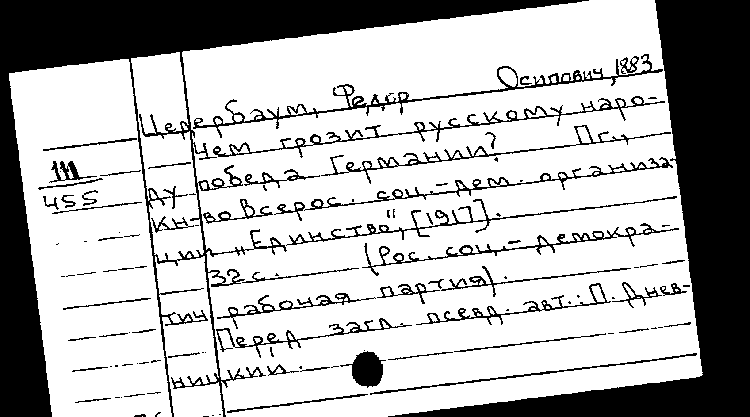 Цедербаум, Федор Осипович, 1883
Чем грозит русскому наро-
ду победа Германии? Пг.,
кн-во Всерос. соц.-дем. организа-
ции „Единство“, [1917].
32 с. (Рос. соц.-демокра-
тич рабочая партия).
Перед загл. псевд. авт.: П. Днев-
ницкий.
111
455